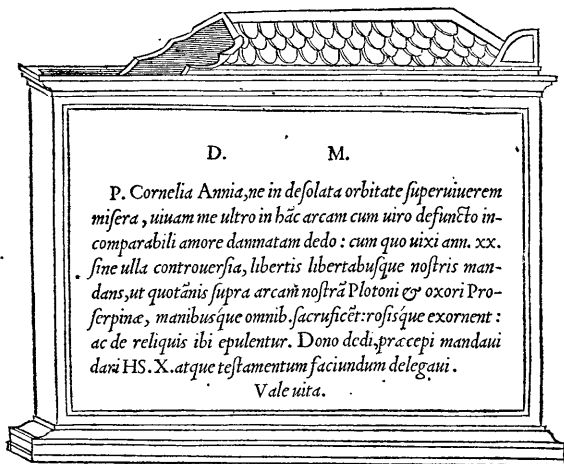 D. M.
P. Cornelia Annia, ne in deſolata orbitate ſuperuiuerem
miſera, uiuam me ultro in hãc arcam cum uiro defuncto in-
comparabili amore damnatam dedo: cum quo uixi ann. xx.
ſine ulla controuerſia, libertis libertabuſque noſtris man-
dans, ut quotãnis ſupra arcam noſtrã Plotoni & oxori Pro-
ſerpinæ, manibuſque omnib. ſacruficẽt: roſisque exornent:
ac de reliquis ibi epulentur. Dono dedi, præcepi mandaui
dari HS. X. atque teſtamentum faciundum delegaui.
Vale uita.